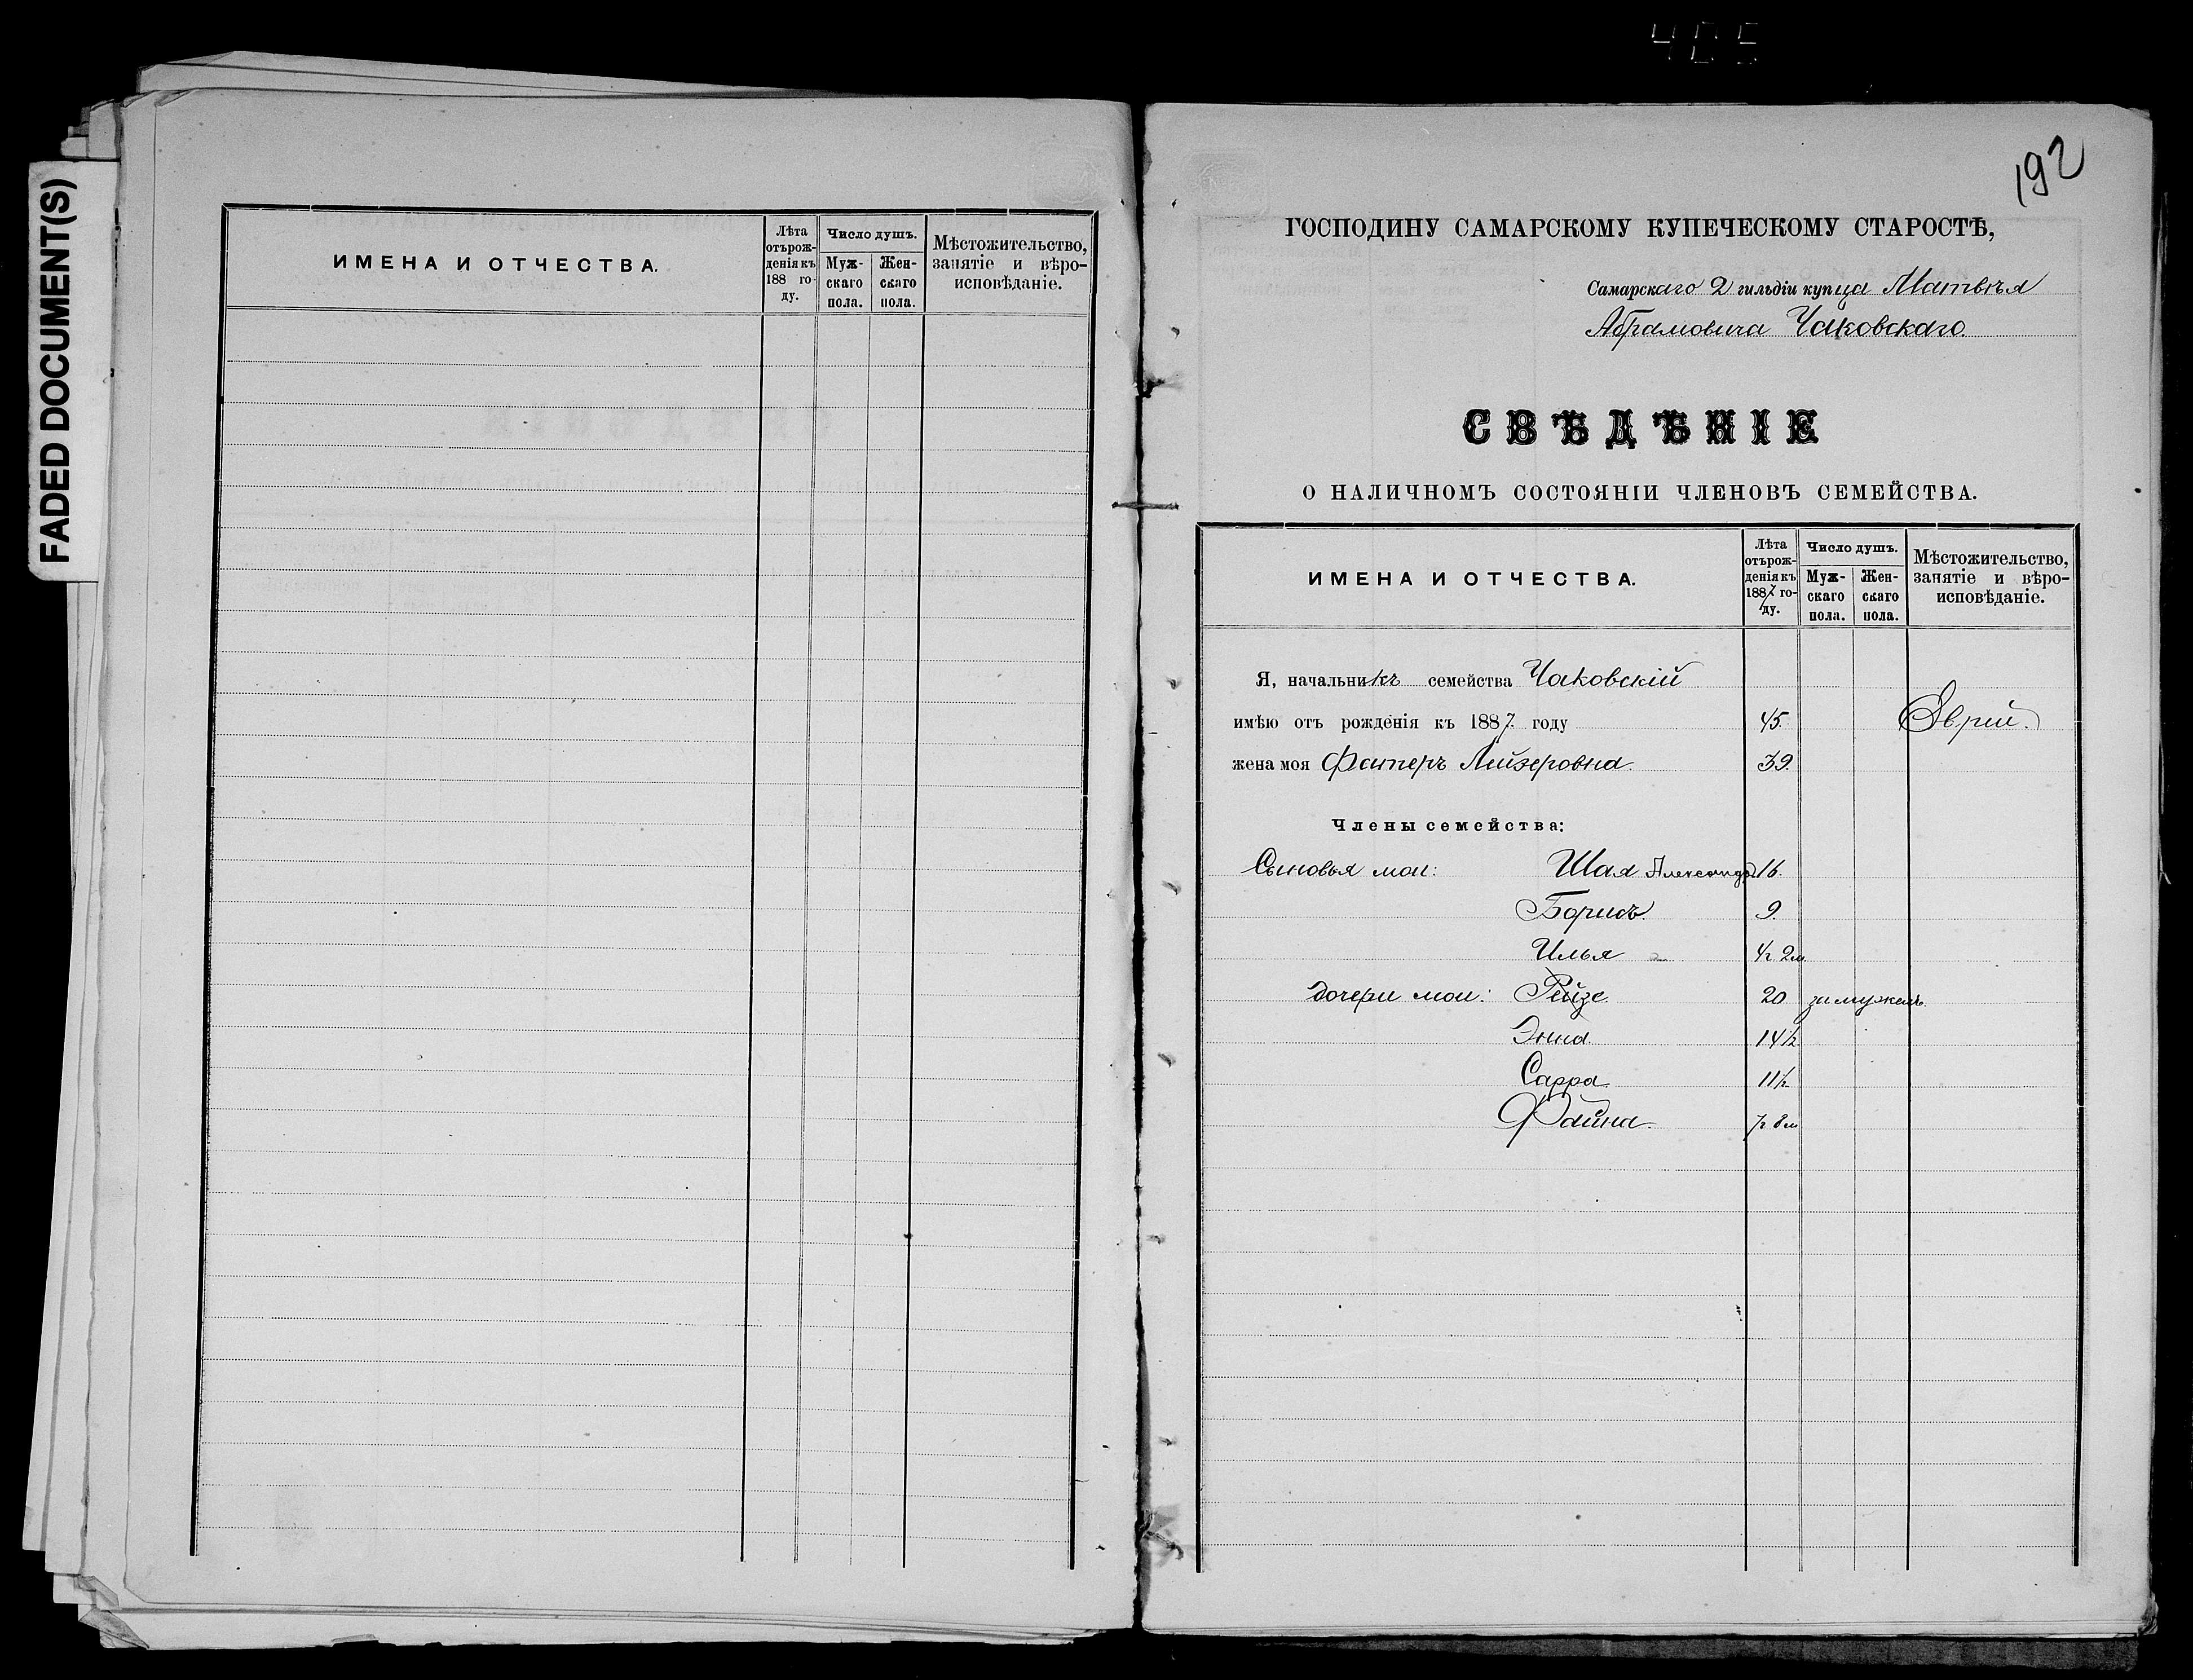 405
FADED DOCUMENT(S)
ИМЕНА И ОТЧЕСТВА.
Лѣта
отърож-
денія къ
188 го-
ду.
Число душъ.
Муж-
скаго
пола.
Жен-
скаго
пола.
Мѣстожительство,
занятіе и вѣро-
исповѣданіе.
192
ГОСПОДИНУ САМАРСКОМУ КУПЕЧЕСКОМУ СТАРОСТѢ,
Самарскаго 2 гильдіи купца Матвѣя
Абрамовича Чаковскаго.
СВѢДѢНІЕ
О НАЛИЧНОМЪ СОСТОЯНІИ ЧЛЕНОВЪ СЕМЕЙСТВА.
ИМЕНА И ОТЧЕСТВА.
Лѣта
отърож-
денія къ
1887 го-
ду.
Число душъ.
Муж-
скаго
пола.
Жен-
скаго
пола.
Мѣстожительство,
занятіе и вѣро-
исповѣданіе.
Я, начальникъ семейства Чаковскій
имѣю отъ рожденія къ 1887 году 45. Еврей.
жена моя Лейзеровна. 39.
Члены семейства:
Сыновья мои: Шая Александръ 16.
Борисъ. 9.
Илья 4г. 2м.
дочери мои: Рейзе. 20 замужемъ.
Энна. 14½
Сарра. 11½
Файна. 7г 8м